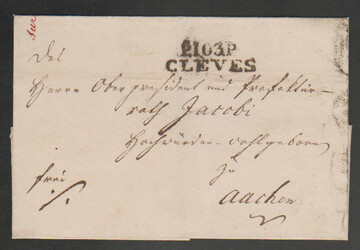 P103P
CLEVES
Des
Herrn Oberpräsident und Präfektur-
rath Jacobi
Hochwürden-wohlgeboren
zu
Aachen
frei